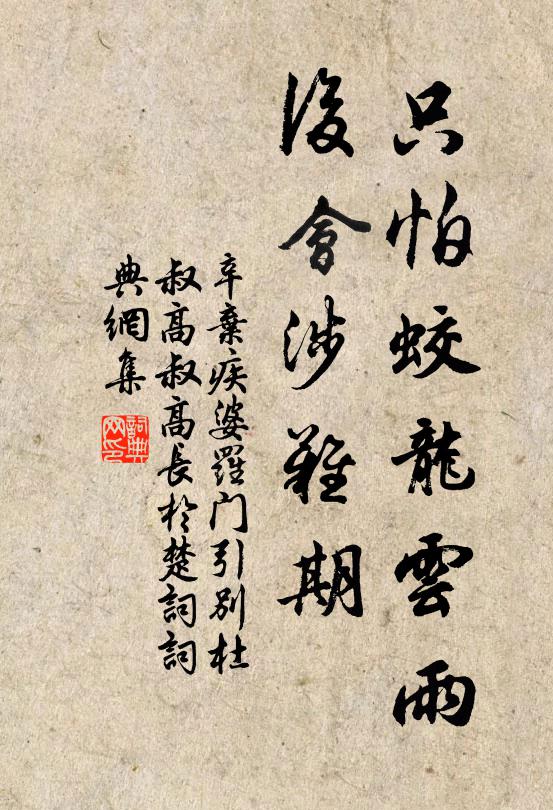 只怕蛟龍雲雨
後會涉難期
辛棄疾婆羅门引別杜
叔高叔高長於楚詞詞
典網集
詞典
网印